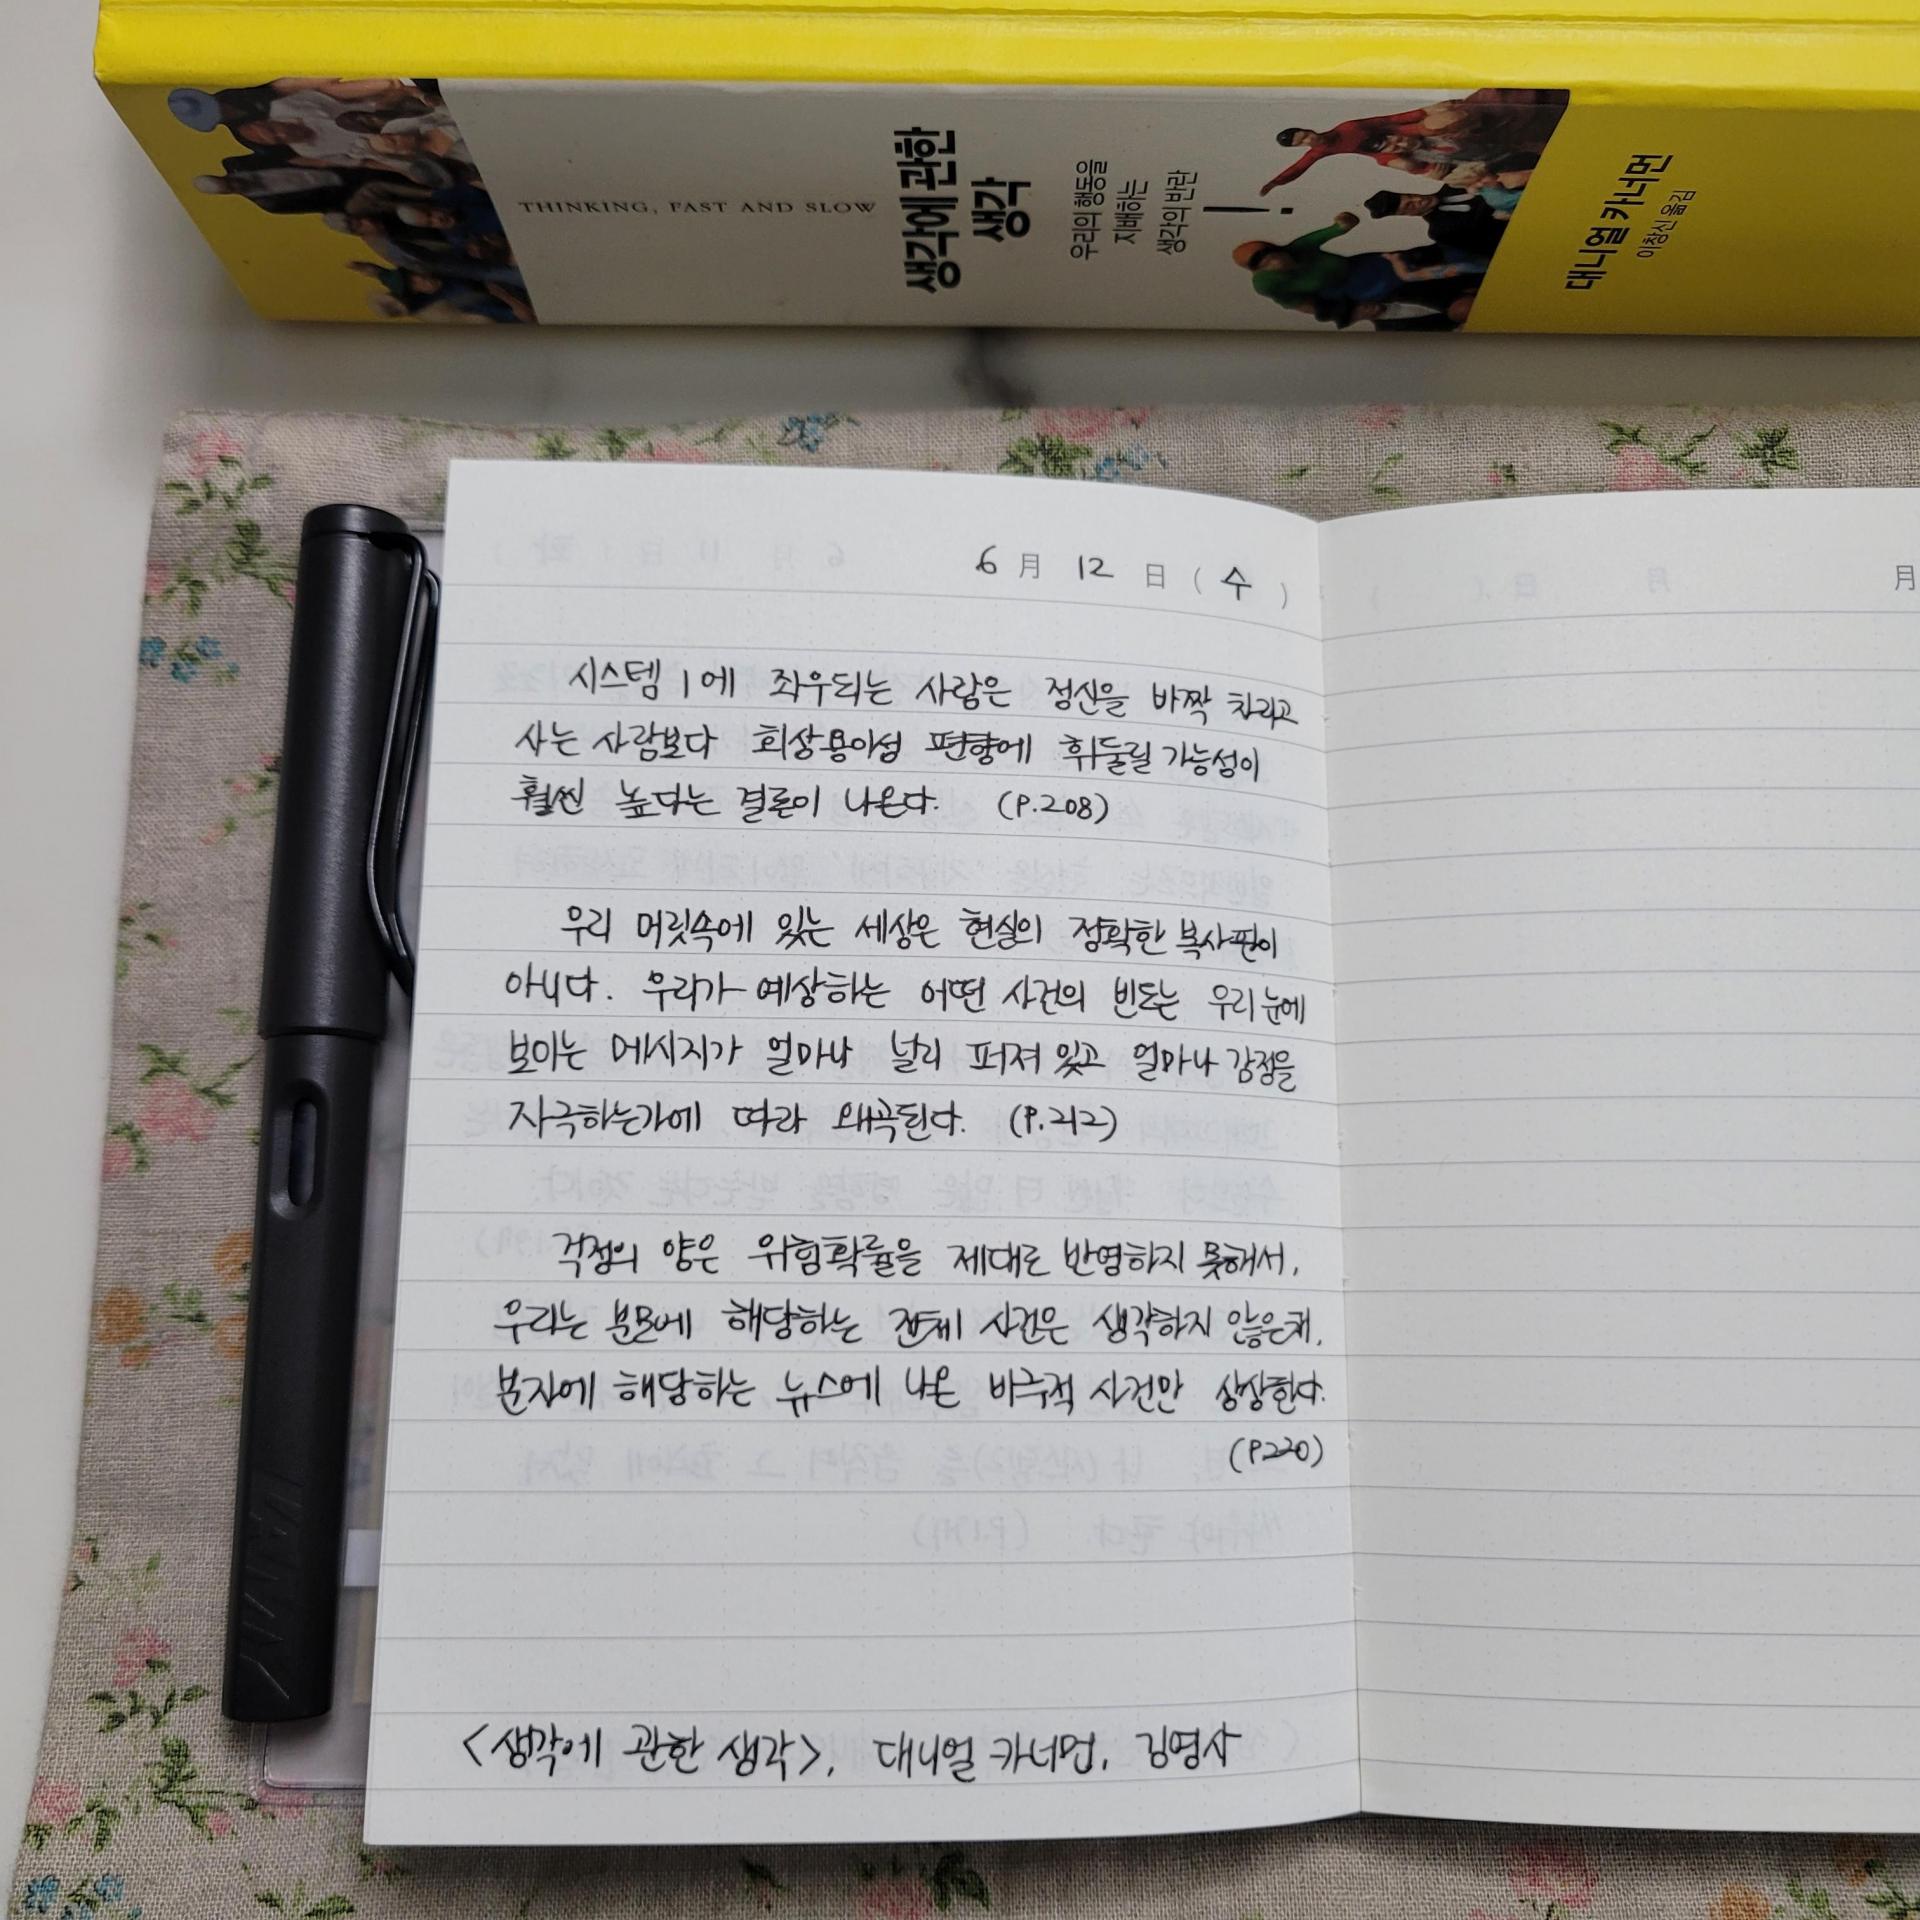 THINKING, FAST AND SLOW
생각에 관한
생각
우리의 행동을
지배하는
생각의 반란!
대니얼 카너먼
이창신 옮김
6 月 12 日 (수)
시스템 1에 좌우되는 사람은 정신을 바짝 차리고
사는 사람보다 회상용이성 편향에 휘둘릴 가능성이
훨씬 높다는 결론이 나온다. (P.208)
우리 머릿속에 있는 세상은 현실의 정확한 복사판이
아니다. 우리가 예상하는 어떤 사건의 빈도는 우리 눈에
보이는 메시지가 얼마나 널리 퍼져 있고 얼마나 감정을
자극하는가에 따라 왜곡된다. (P.212)
걱정의 양은 위험확률을 제대로 반영하지 못해서,
우리는 분모에 해당하는 전체 사건은 생각하지 않은채,
분자에 해당하는 뉴스에 나온 비극적 사건만 상상한다.
(P.220)
<생각에 관한 생각>, 대니얼 카너먼, 김영사
月
LAMY